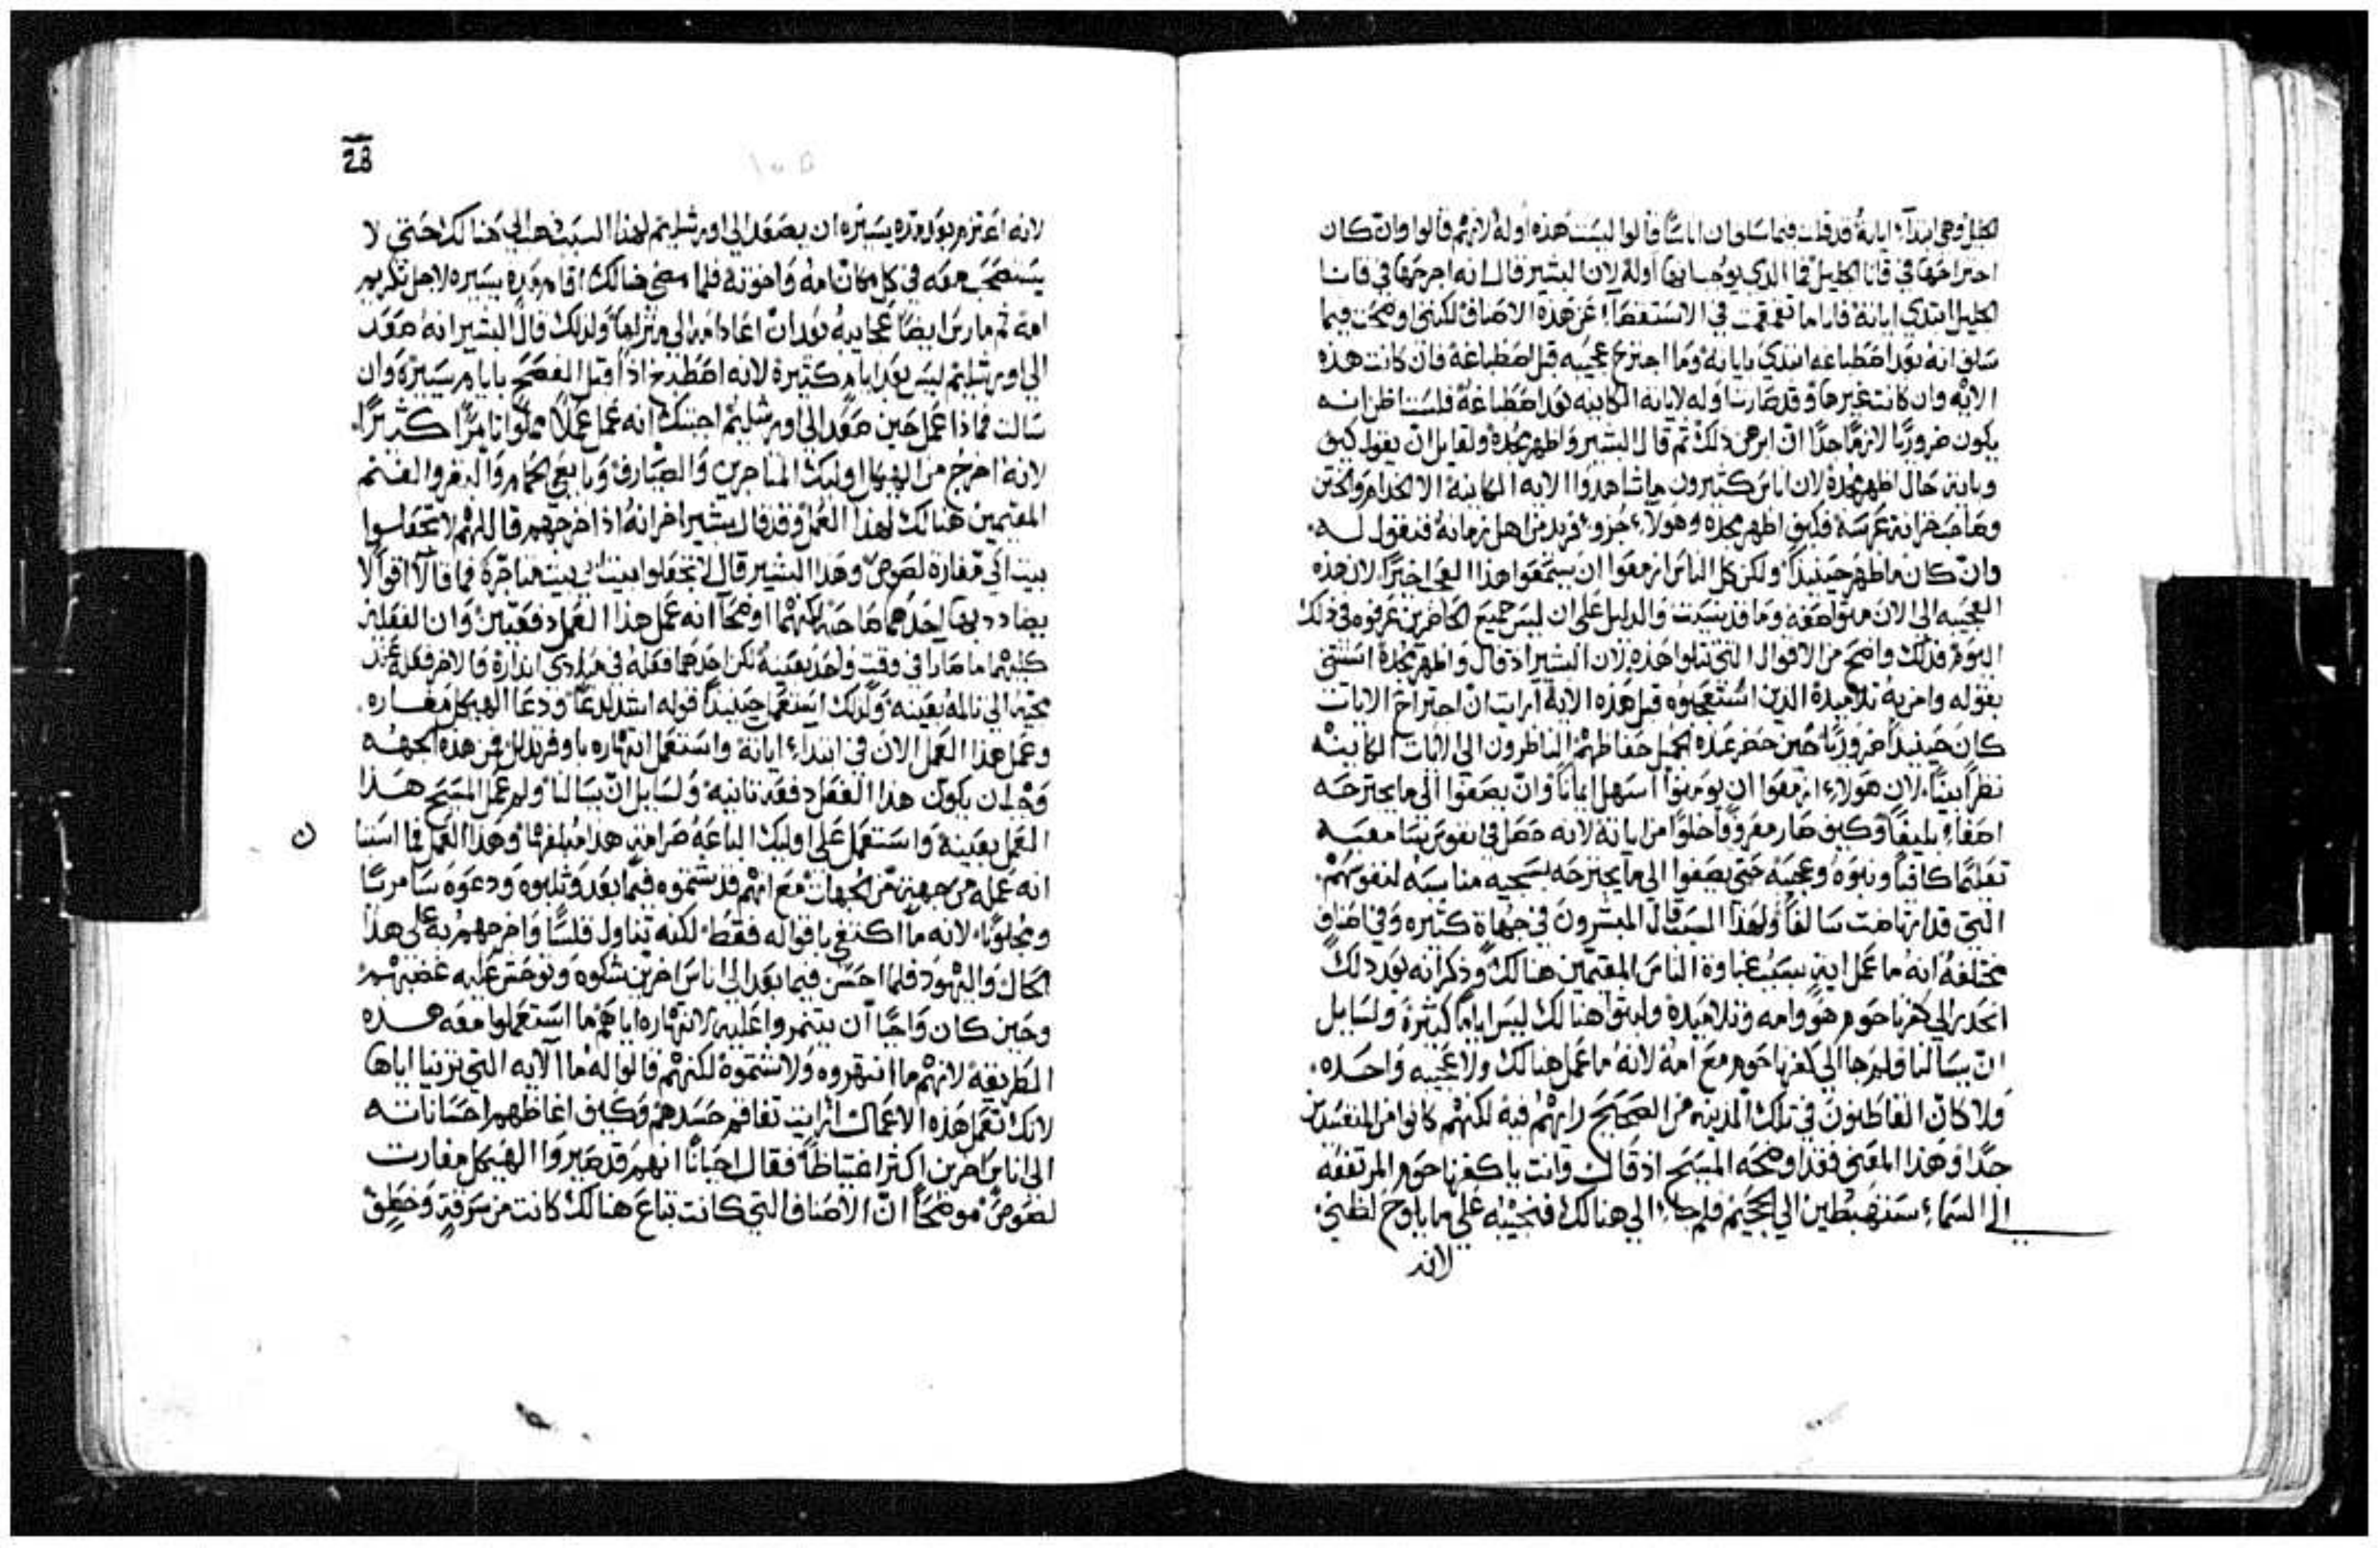 الجليل وهي ابتداء اياته قد قلت فيما سلف ان اناسًا قالوا ليست هذه اوله لانهم قالوا وان كان
اجتراحها في قانا الجليل فما الذي يوجب انها اوله لان البشير قال انه اجترحها في قانا
الجليل ابتدي اياته فانا ما تعمقت في الاستقصاء عن هذه الاصناف لكنني اوضحت فيما
سلف انه بعد اصطباغه ابتدي باياته وما اجترح عجيبه قبل اصطباغه فان كانت هذه
الايه وان كانت غيرها وقد صارت اوله لاياته الكاينه بعد اصطباغه فلست اظن انه
يكون ضروريًا لازمًا جدًا ان ابرهن ذلك ثم قال البشير واظهر مجده ولقايل ان يقول كيف
وباية حال اظهر مجده لان اناس كثيرون ما شاهدوا الايه الكاينة الا الخدام والختن
وصاحب خزانة عرسه فكيف اظهر مجده وهولاء جزو فريد من اهل زمانه فنقول له
وان كان ما اظهر حينيذ ولكن كل الناس ازمعوا ان يسمعوا هذا العجب اخيرًا لان هذه
العجيبه الى الان متواصفه وما قد نسيت والدليل على ان ليس جميع الحاضرين عرفوه في ذلك
اليوم فذلك واضح من الاقوال التي تتلوا هذه لان البشير اذ قال واظهر مجده استثنى
بقوله وامن به تلاميذه الذين استعجبوه قبل هذه الاية ارايت ان اجتراح الايات
كان حينيذ ضروريًا حين حضر عنده الجميل حفاظهم الناظرون الى الايات الكاينه
نظرًا بينًا لان هولاء ازمعوا ان يومنوا اسهل ايمانًا وان يصغوا الى ما يجترحه
اصغاء بليغًا وكيف صار معروفًا خلوًا من اياته لانه حصل في نفوس سامعيه
تعليمًا كافيًا ونبوه وعجيبه حتى يصغوا الى ما يجترحه بسجيه مناسبه لنفوسهم
التي قد ارتاضت سالفًا ولهذا السبب قال المبشرون في جهاة كثيره وفي اصناف
مختلفه انه ما عمل اية بسبب غباوة الناس المقيمين هنالك وذكر انه بعد ذلك
انحدر الي كفرناحوم هو وامه وتلاميذه ولبثوا هنالك ليس اياما كثيرة ولسايل
ان يسالنا فلم جا الى كفرناحوم مع امه لانه ما عمل هنالك ولا عجيبه واحده
ولا كان القاطنون في تلك المدينه من الصحيح رايهم فيه لكنهم كانوا من المفسدين
جدًا وهذا المعنى فقد اوضحه المسيح اذ قال وانت يا كفرناحوم المرتفعه
الى السماء ستهبطين الى الجحيم فلم جاء الى هنالك فنجيبه على ما يلوح لظني
لانه
28
لانه اعتزم بعد مده يسيره ان يصعد الى اورشليم لهذا السبب ذهب الي هنالك حتى لا
يستصحب معه في كل مكان امه واخوته فلما مضى هنالك اقام مده يسيره لاجل تكريم
امه ثم مارس ايضًا عجايبه بعد ان اعاد امه الى منزلها ولذلك قال البشير انه صعد
الى اورشليم ليس بعد ايام كثيرة لانه اصطبغ اذًا قبل الفصح بايام يسيرة وان
سالت فماذا عمل حين صعد الى اورشليم اجبتك انه عمل عملًا مملوًا تامرًا كثيرًا
لانه اخرج من الهيكل اوليك المتاجرين والصيارف وبايعي الحمام والبقر والغنم
المقيمين هنالك لهذا العمل وقد قال بشير اخر انه اذ اخرجهم قال لهم لا تجعلوا
بيت ابي مغارة لصوص وهذا البشير قال لا تجعلوا بيت ابي بيت متاجرة فما قالا اقوالا
يضادد بها احدهما صاحبه لكنهما اوضحا انه عمل هذا العمل دفعتين وان الفعلين
كليهما ما صارا في وقت واحد بعينه لكن احدهما فعله في مبادى انذاره والاخر فعله عند
مجيه الى تالمه بعينه ولذلك استعمل حينيذ قوله اشد لدغًا ودعا الهيكل مغاره
وعمل هذا العمل الان في ابتداء اياته واستعمل انتهاره باوفر تذلل فمن هذه الجهه
وجب ان يكون هذا الفعل دفعه ثانيه ولسايل ان يسالنا ولم عمل المسيح هذا
العمل بعينه واستعمل على اوليك الباعه صرامة هذا مبلغها وهذا العمل فما استبنا
انه عمله من جهة من الجهات مع انهم قد شتموه فيما بعد وثلبوه ودعوه سامريًا
ومجنونًا لانه ما اكتفى باقواله فقط لكنه تناول قلسًا واخرجهم به على هذا
الحال واليهود فلما احسن فيما بعد الى اناس اخرين شكوه وتوحش عليه غضبهم
وحين كان واجبًا ان يتنمروا عليه لانتهاره اياهم ما استعملوا معه هذه
الطريقة لانهم ما انتهروه ولا شتموه لكنهم قالوا له ما الايه التي ترينا اياها
لانك تعمل هذه الاعمال ارايت تفاقم حسدهم وكيف اغاظهم احساناته
الى اناس اخرين اكثر اغتياظًا فقال احيانًا انهم قد صيروا الهيكل مغارت
لصوص موضحًا ان الاصناف التي كانت تباع هنالك كانت من سرقة وخطف